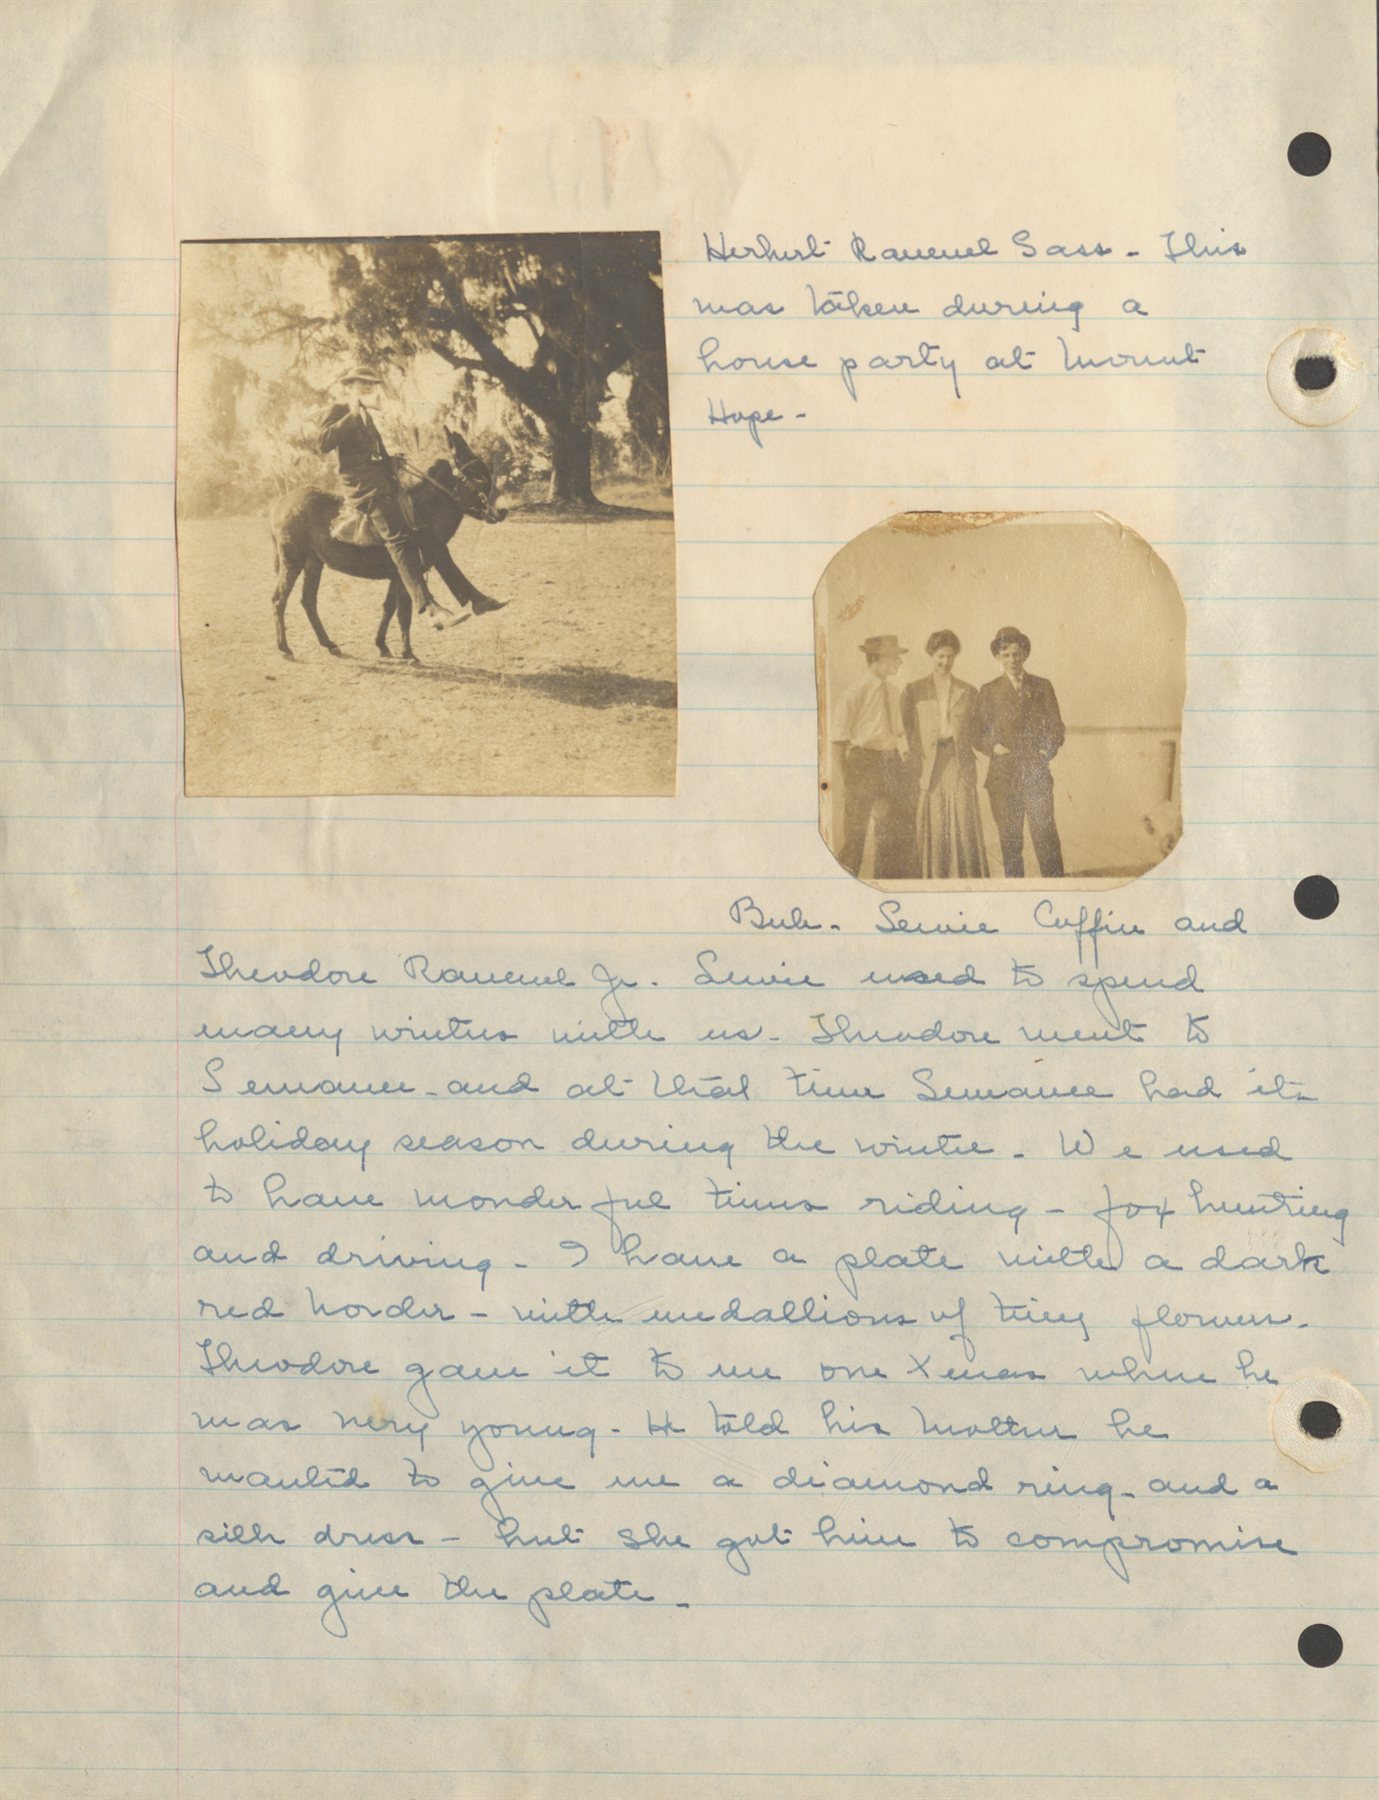 Herbert Ravenel Sass - This
was taken during a
house party at Mount
Hope -
Bub - Coffin and
Theodore Ravenel Jr. used to spend
many winters with us - Theodore went to
Sewanee - and at that time Sewanee had its
holiday season during the winter - We used
to have wonderful times riding - fox hunting
and driving - I have a plate with a dark
red border - with medallions of tiny flowers -
Theodore gave it to me one Xmas when he
was very young - He told his Mother he
wanted to give me a diamond ring - and a
silk dress - but she got him to compromise
and give the plate -